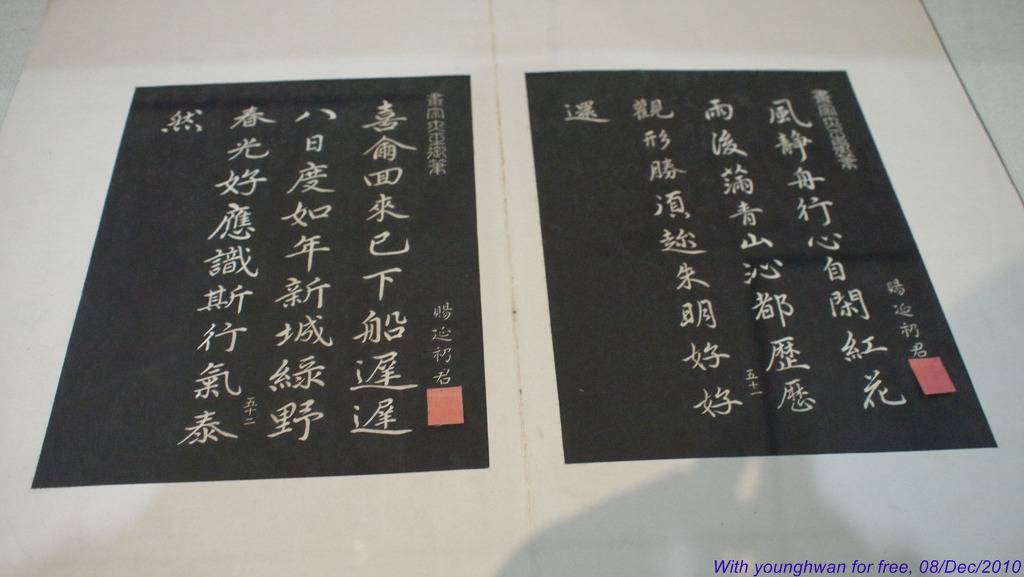 賜延初君
風靜舟行心自閑紅花
雨後蒲青山沁都歷歷
五十一
觀形勝須趁朱明好好
還
賜延初君
喜侖回來已下船遲遲
八日度如年新城綠野
五十二
春光好應識斯行氣泰
然
With younghwan for free, 08/Dec/2010